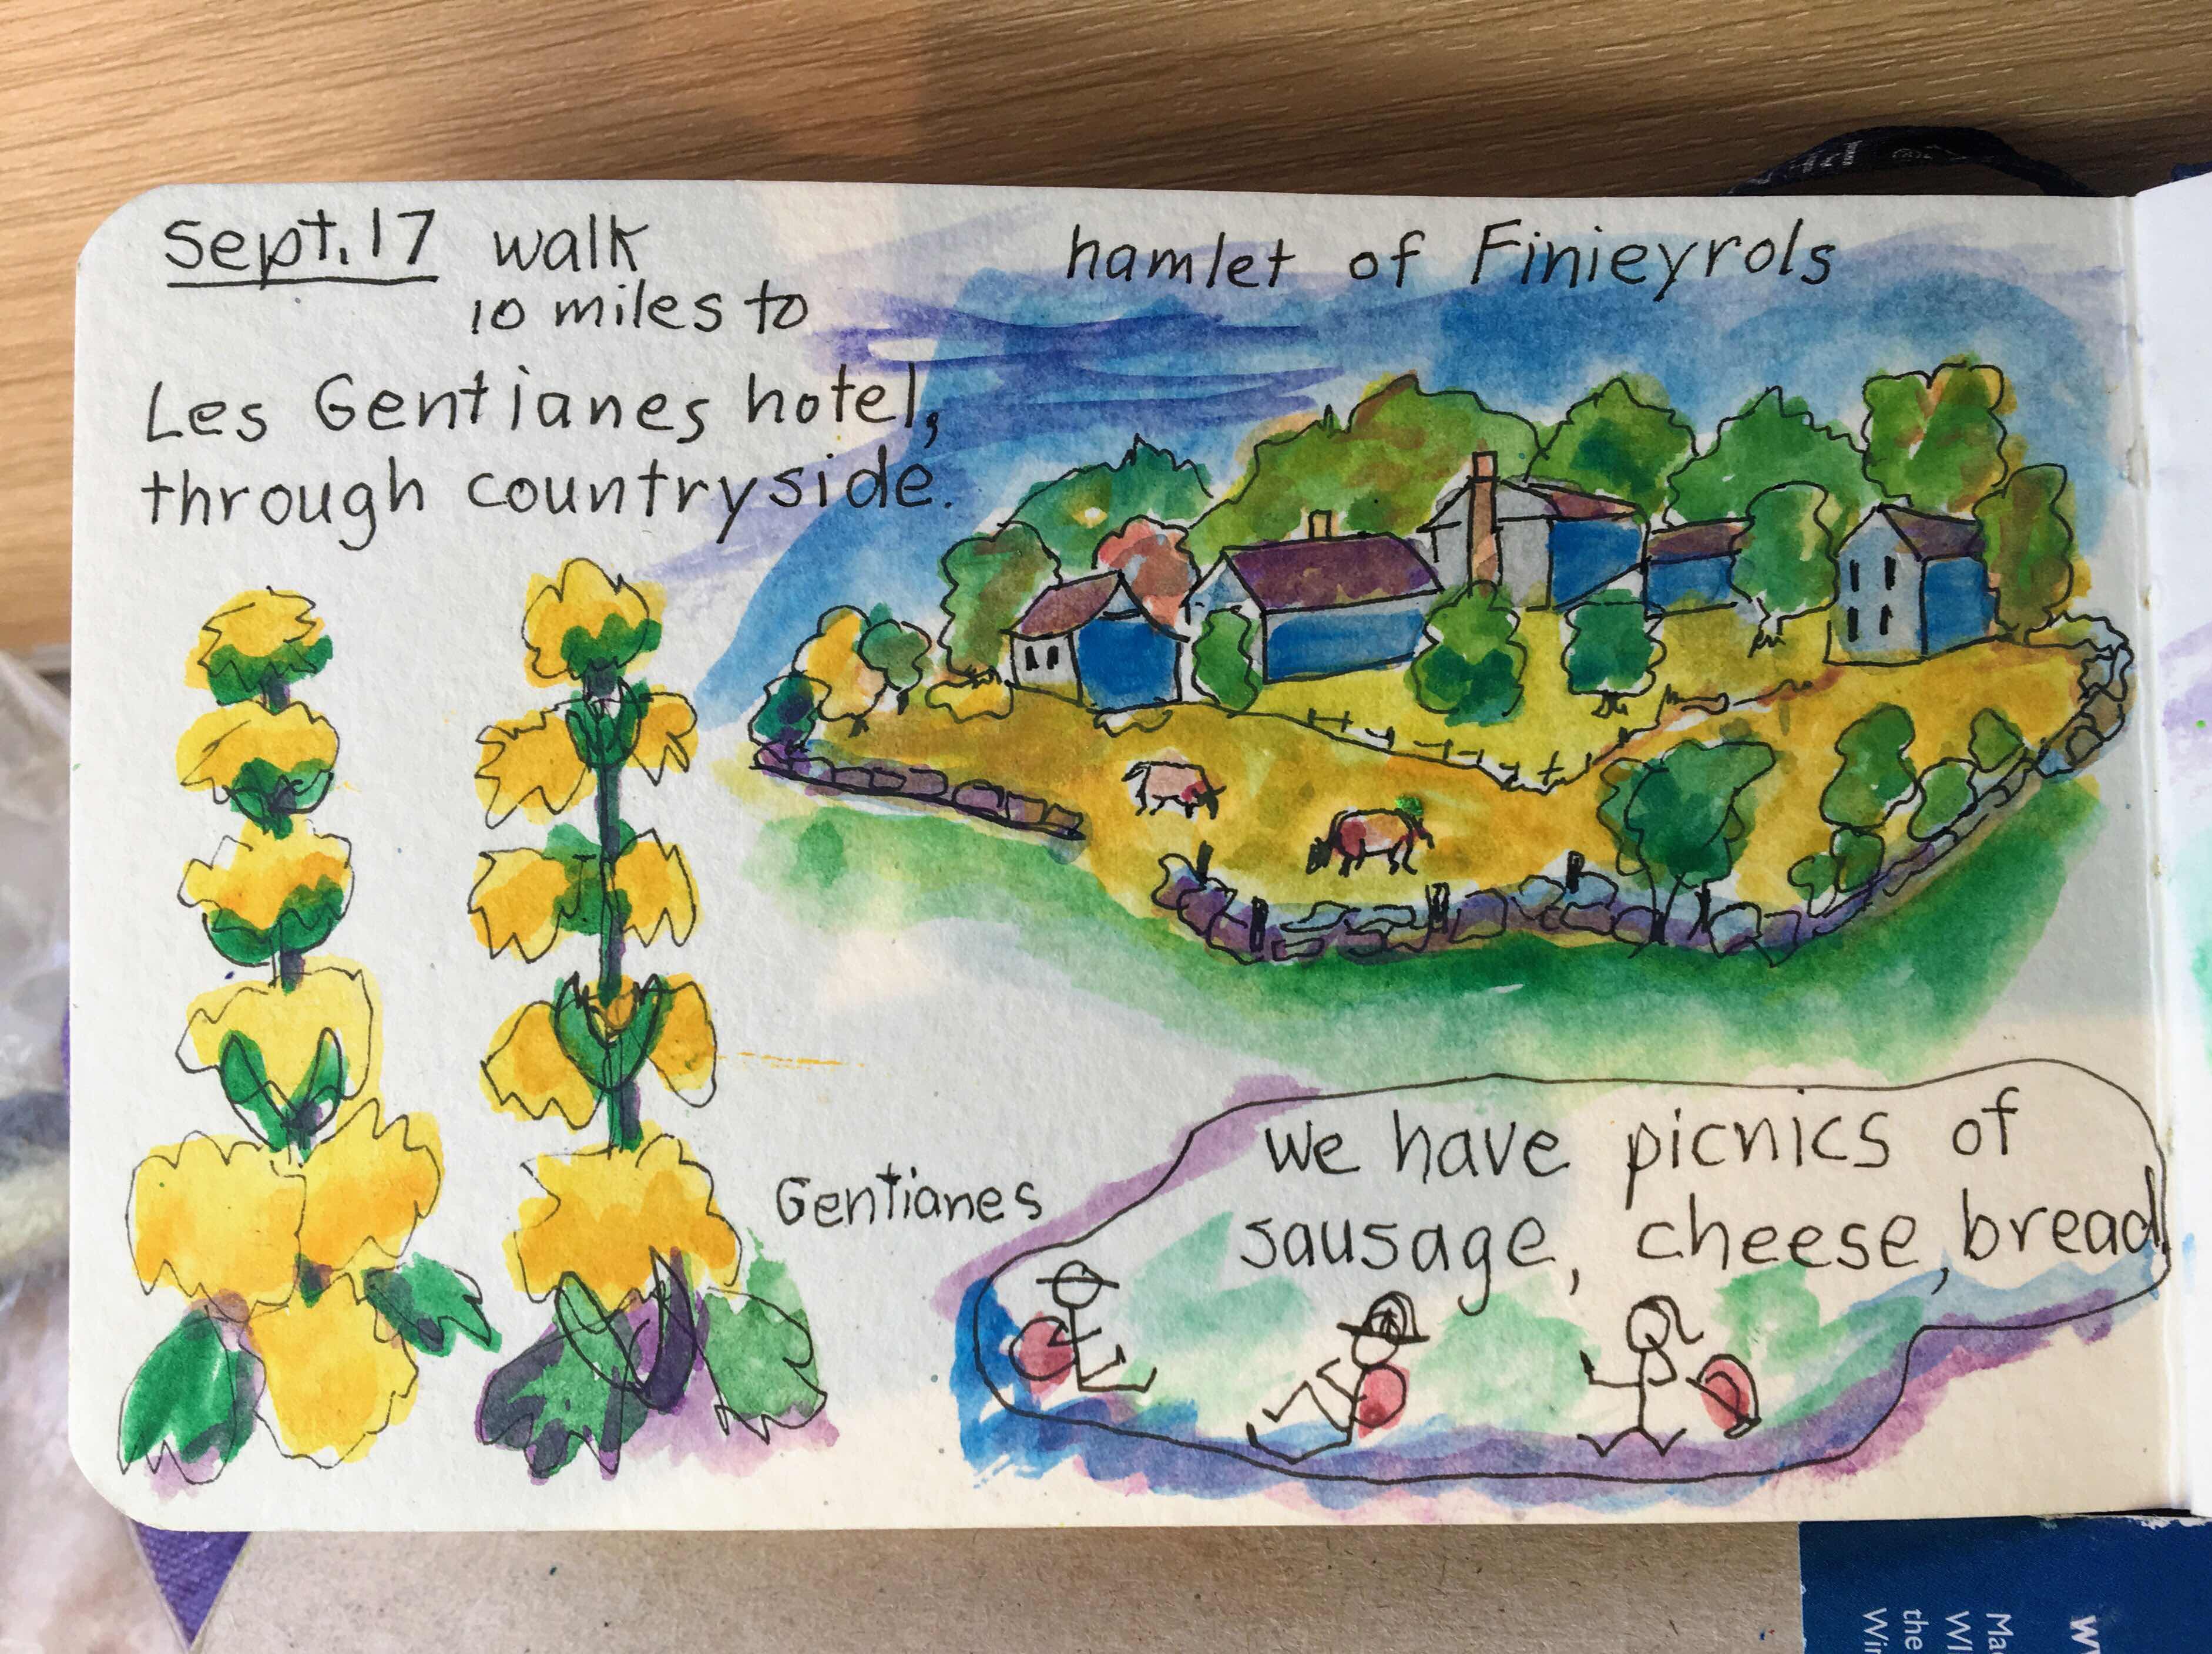 Sept. 17 walk
10 miles to
Les Gentianes hotel,
through countryside.
hamlet of Finieyrols
Gentianes
We have picnics of
sausage, cheese, bread.
W
Ma
WI
the
Win